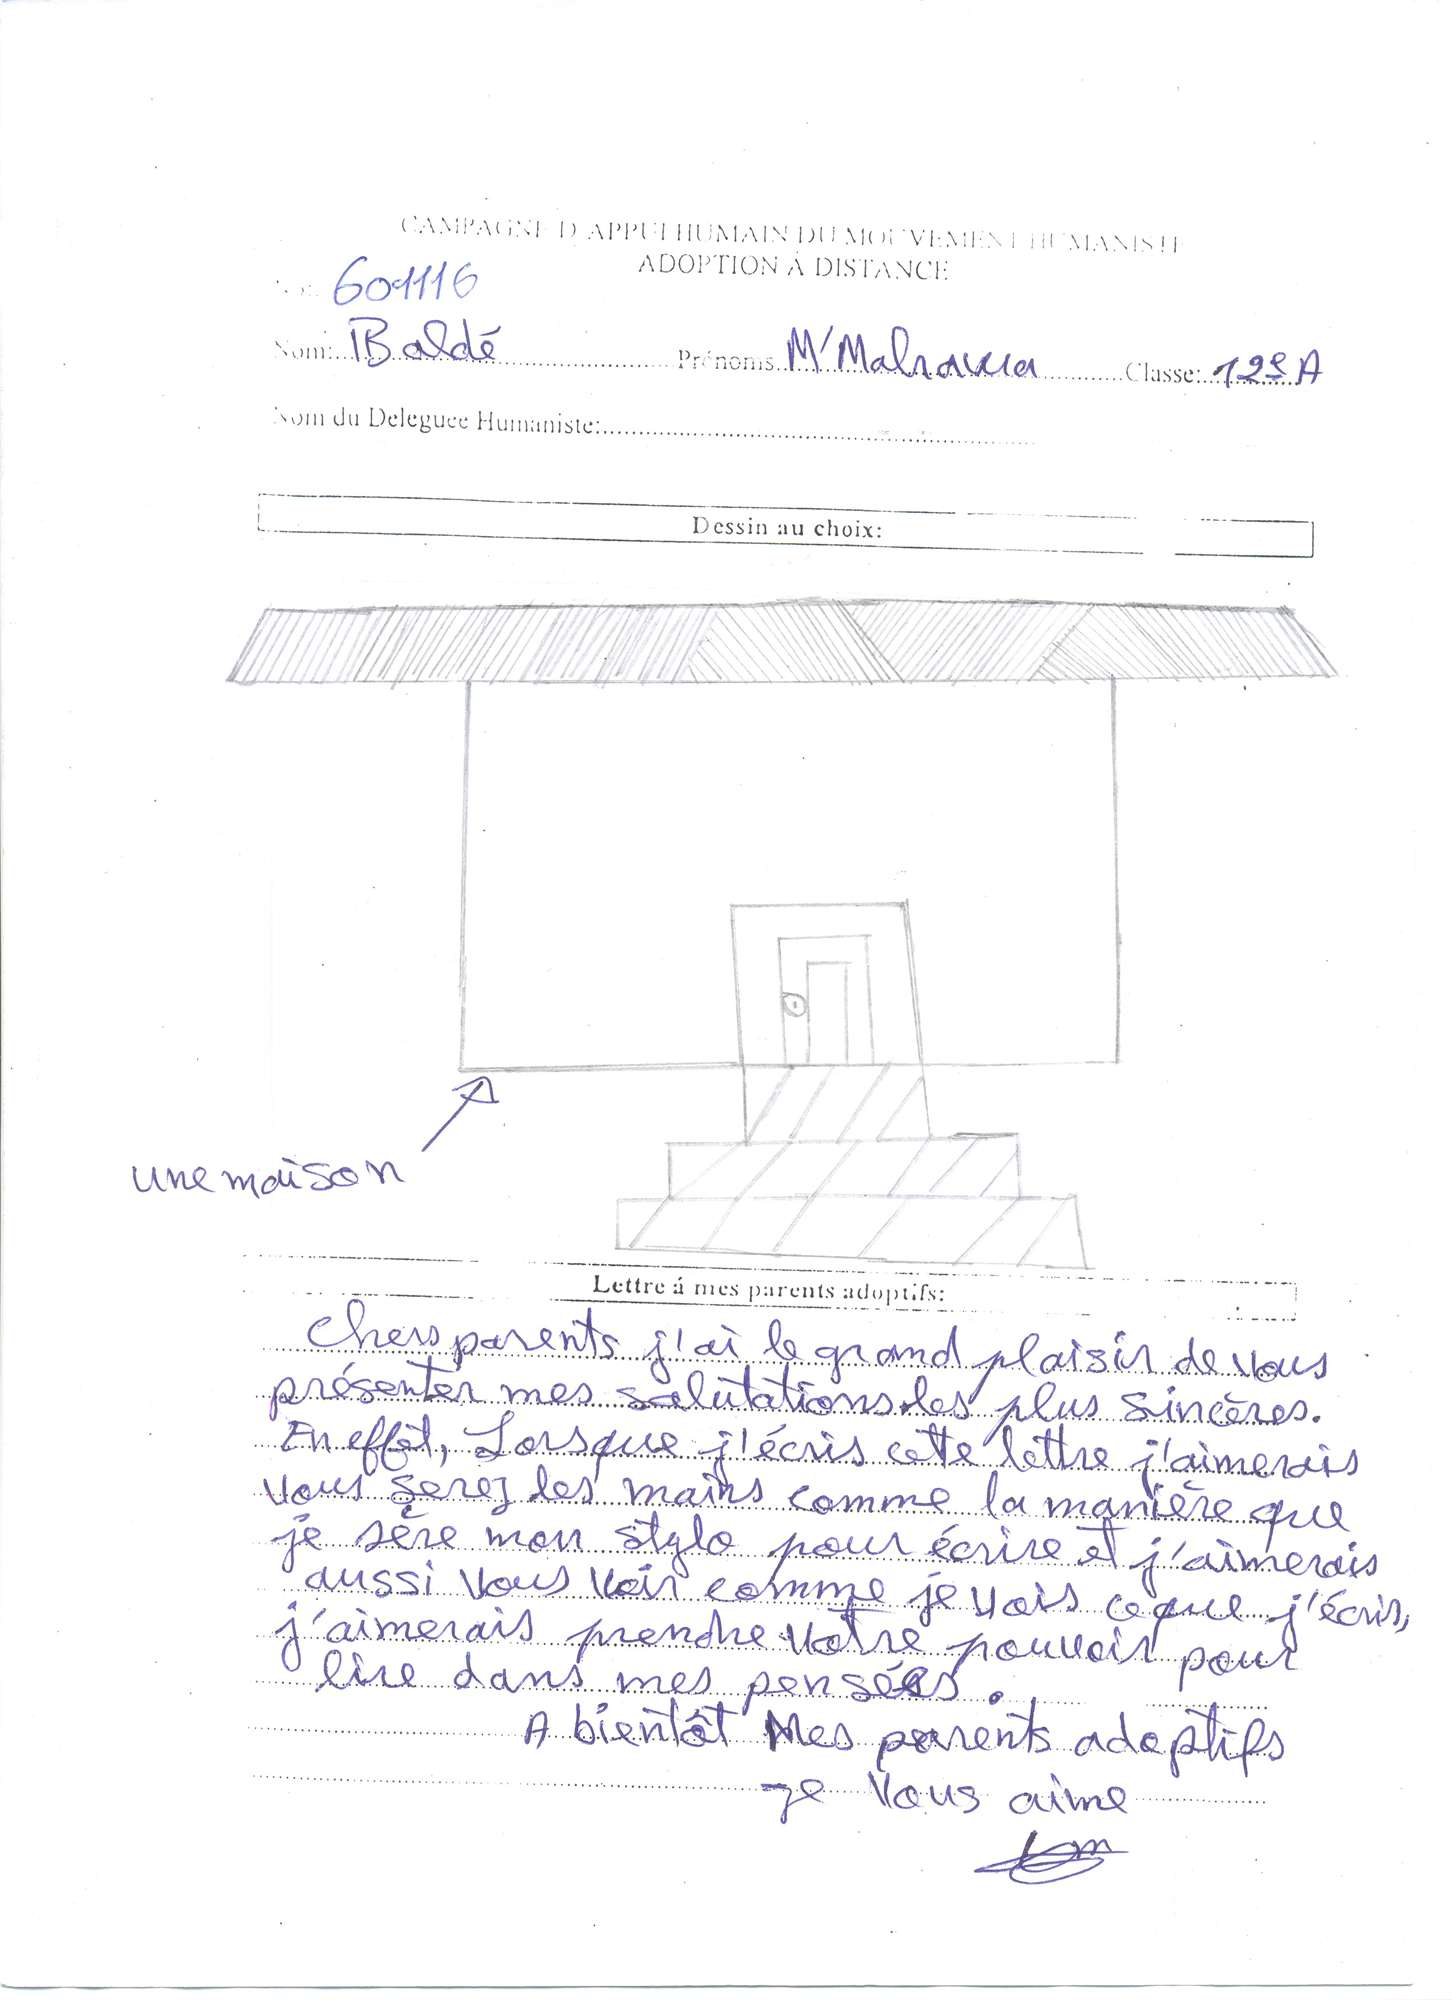 CAMPAGNE D'APPUI HUMAIN DU MOUVEMENT HUMANISTE
ADOPTION Á DISTANCE
601116
Nom: Baldé Prénoms M'Mahawa Classe: 12e A
Nom du Deleguee Humaniste:
Dessin au choix:
une maison
Lettre á mes parents adoptifs:
Chers parents j'ai le grand plaisir de vous
présenter mes salutations les plus sincères.
En effet, Lorsque j'écris cette lettre j'aimerais
vous serez les mains comme la manière que
je sère mon stylo pour écrire et j'aimerais
aussi vous voir comme je vois ce que j'écris,
j'aimerais prendre votre pouvoir pour
lire dans mes pensées.
A bientôt Mes parents adoptifs
Je vous aime